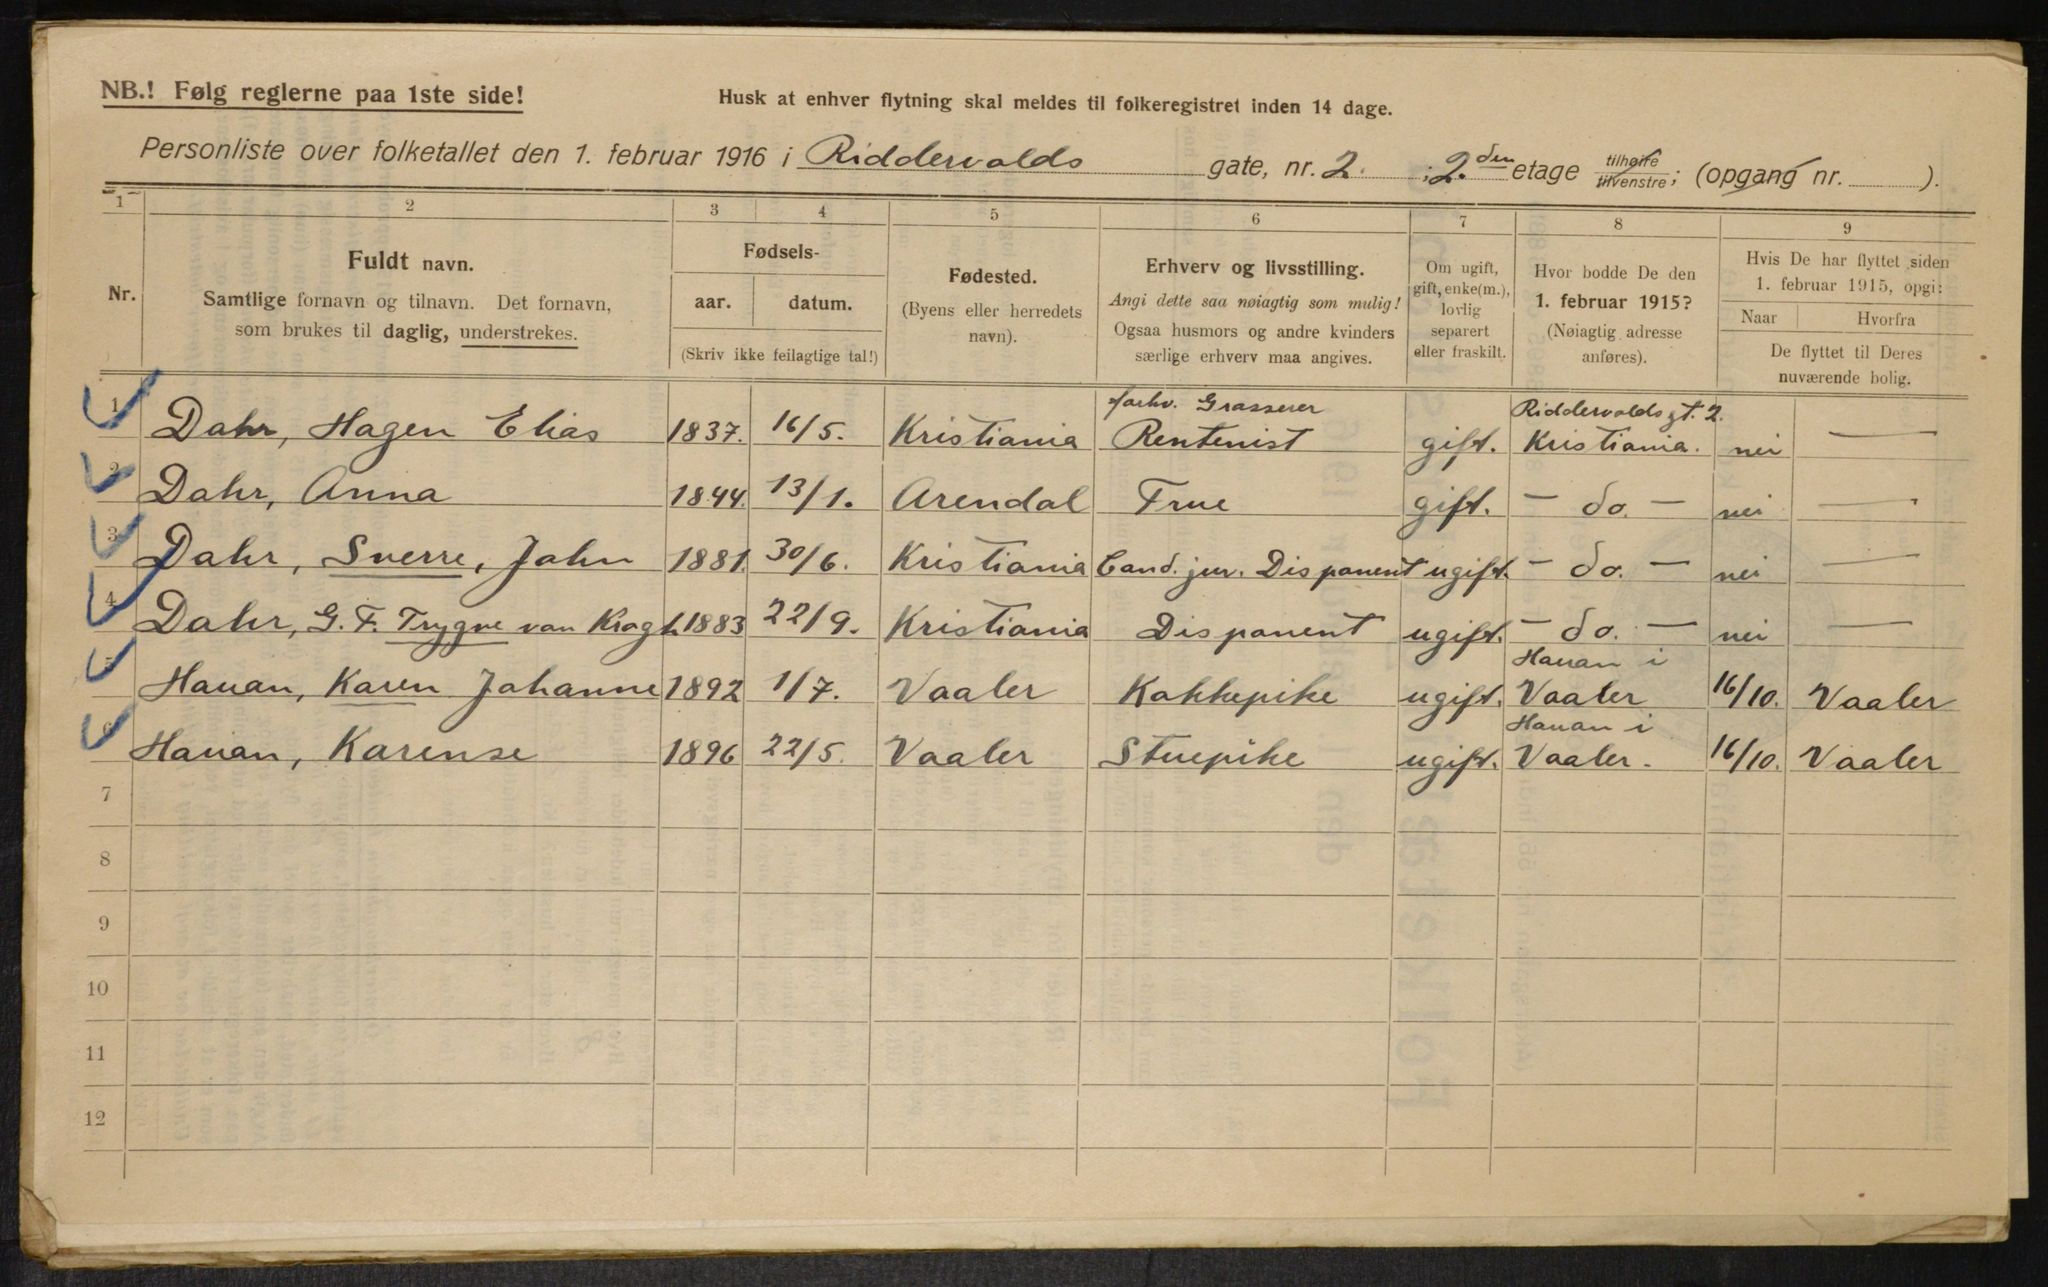 NB.! Følg reglerne paa 1ste side!
Husk at enhver flytning skal meldes til folkeregistret inden 14 dage.
Personliste over folketallet den 1. februar 1916 i Riddervolds gate, nr. 2. ; 2.den etage tilhøire tilvenstre; (opgang nr. ).
1 2 3 4 5 6 7 8 9
Nr.
Fuldt navn.
Samtlige fornavn og tilnavn. Det fornavn,
som brukes til daglig, understrekes.
Fødsels-
aar. datum.
(Skriv ikke feilagtige tal!)
Fødested.
(Byens eller herredets
navn).
Erhverv og livsstilling.
Angi dette saa nøiagtig som mulig!
Ogsaa husmors og andre kvinders
særlige erhverv maa angives.
Om ugift,
gift, enke(m.),
lovlig
separert
eller fraskilt.
Hvor bodde De den
1. februar 1915?
(Nøiagtig adresse
anføres).
Hvis De har flyttet siden
1. februar 1915, opgi:
Naar Hvorfra
De flyttet til Deres
nuværende bolig.
forhv. Grosserer Riddervolds gt. 2.
1 Dahr, Hagen Elias 1837. 16/5. Kristiania Rentenist gift. Kristiania. nei —
2 Dahr, Anna 1844. 13/1. Arendal Frue gift. — do. — nei —
3 Dahr, Sverre, John 1881. 30/6. Kristiania Cand. jur. Disponent ugift. — do. — nei —
4 Dahr, G. F. Trygve von Krogh 1883 22/9. Kristiania Disponent ugift. — do. — nei —
Hauan i
5 Hauan, Karen Johanne 1892 1/7. Vaaler Kokkepike ugift. Vaaler 16/10. Vaaler
Hauan i
6 Hauan, Karense 1896 22/5. Vaaler Stuepike ugift. Vaaler. 16/10. Vaaler
7
8
9
10
11
12